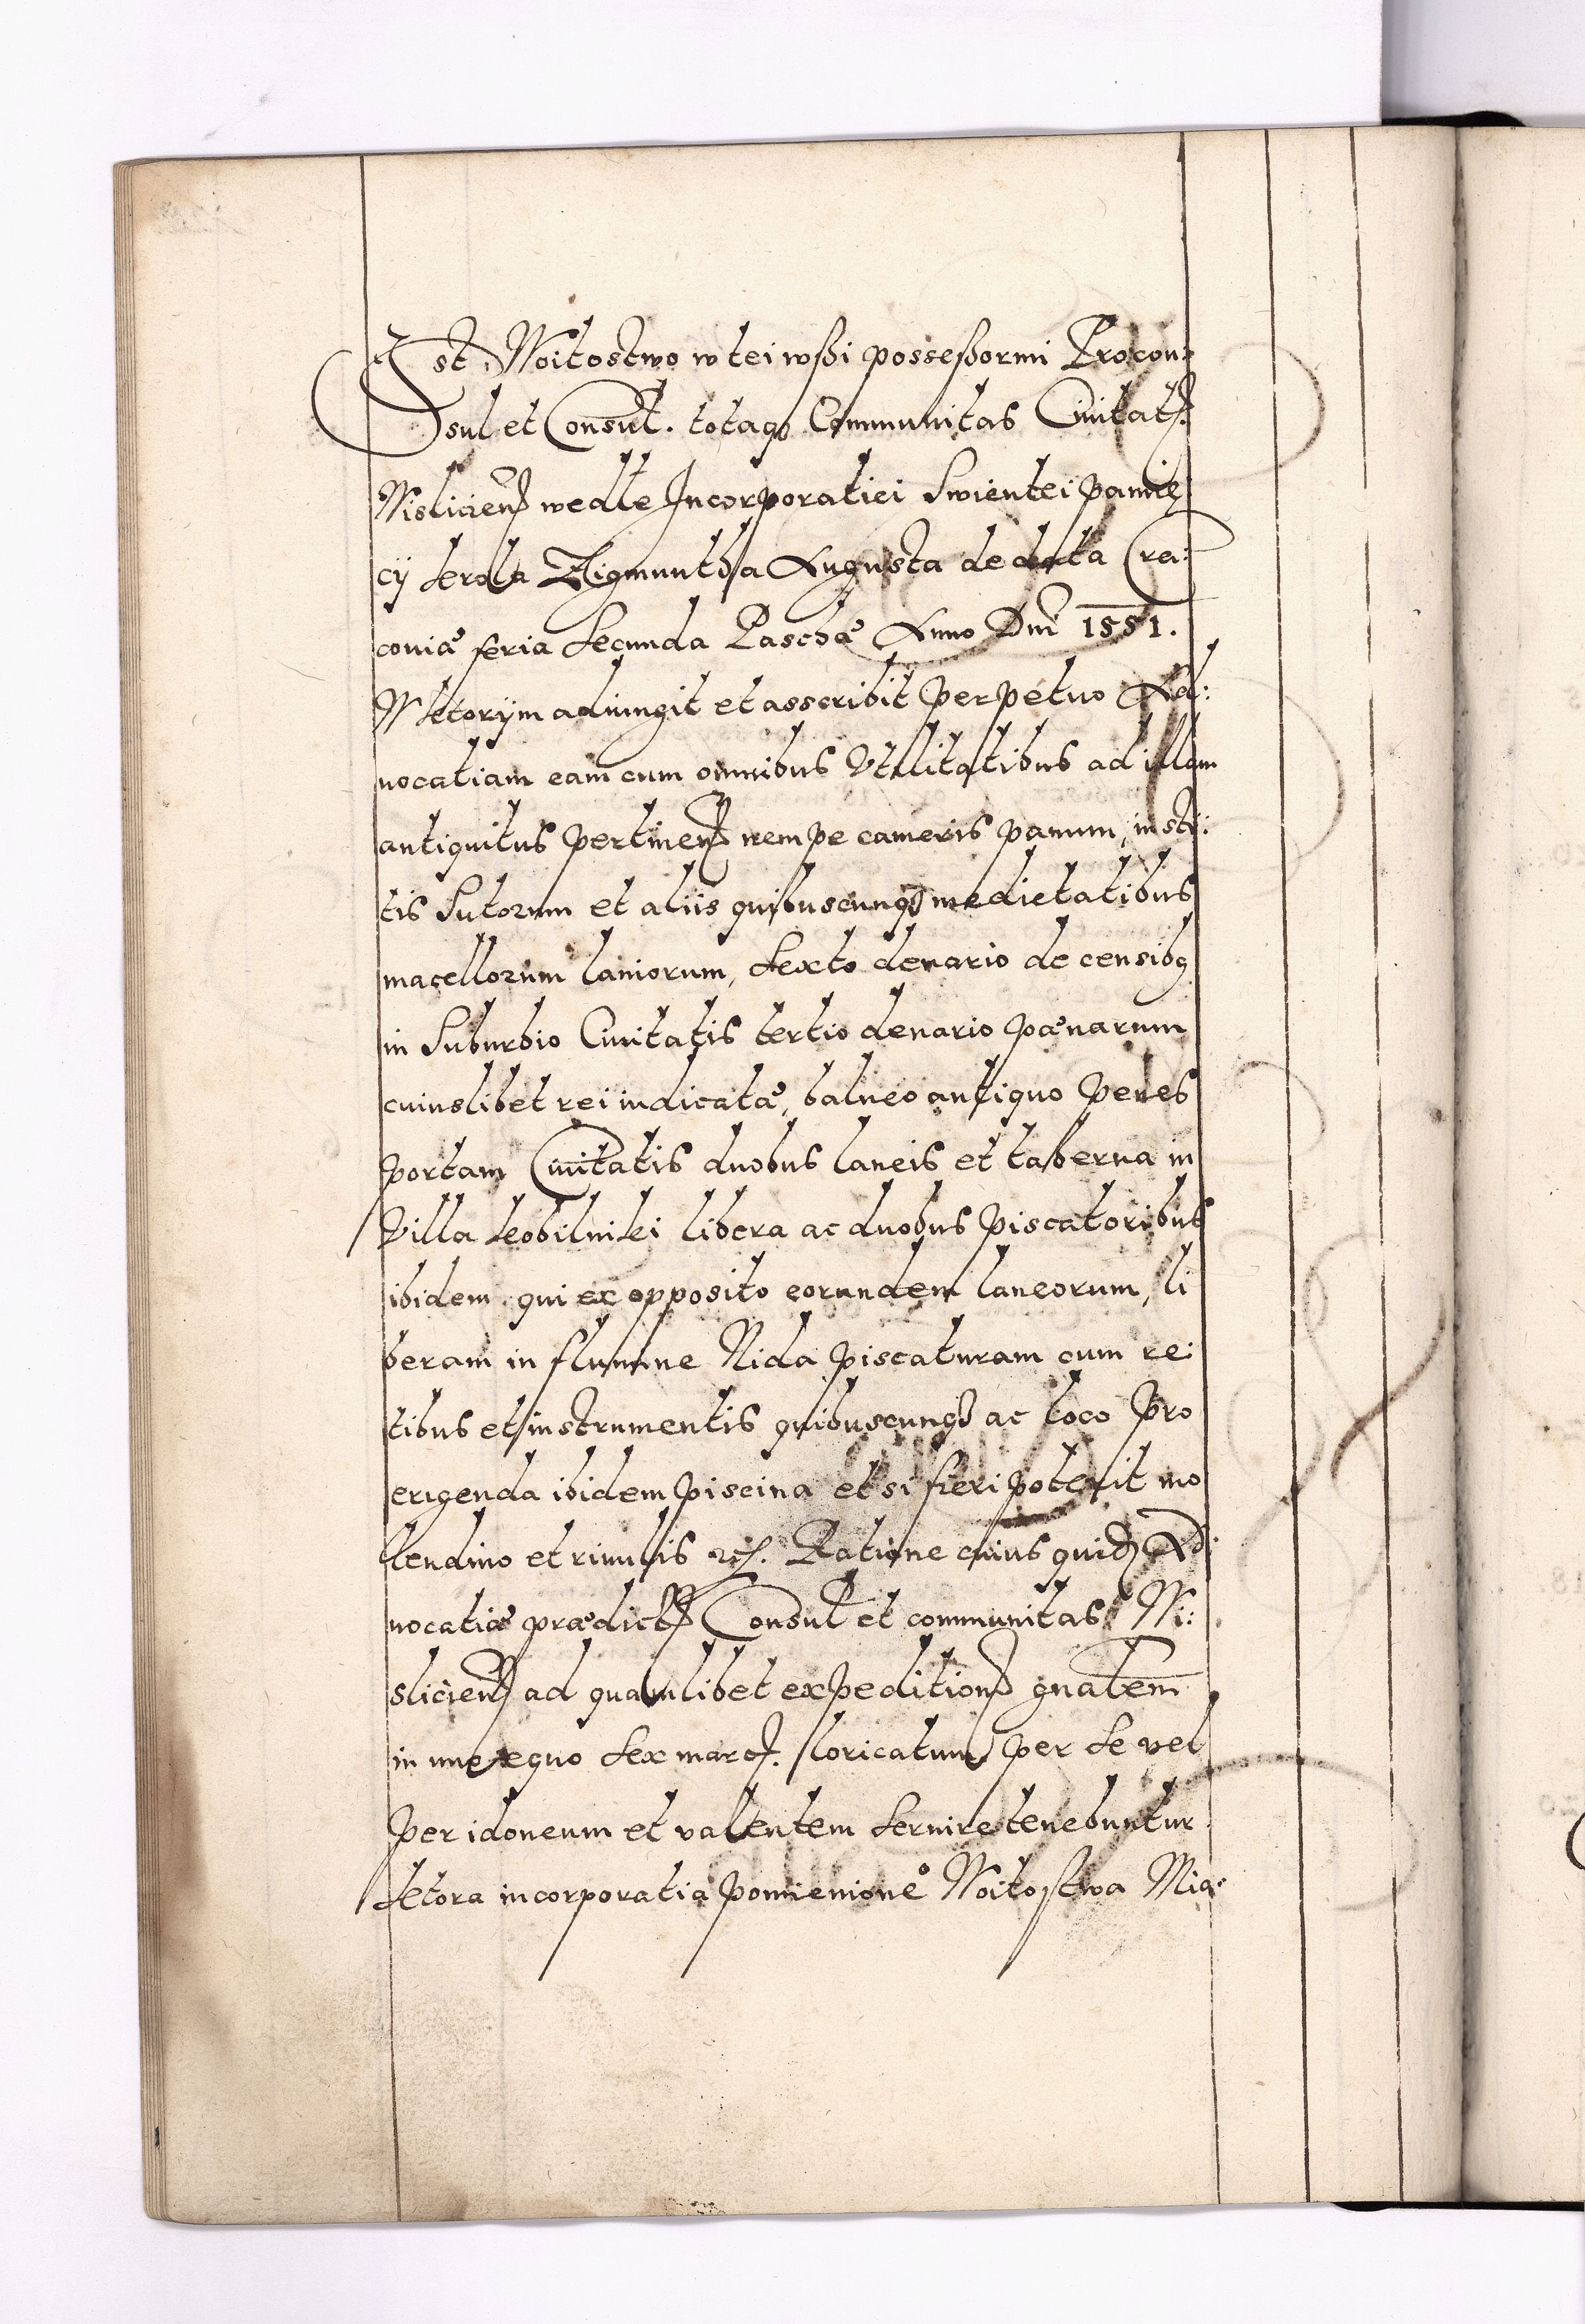 Jst Woitostwo w tei wßi posseßormi Procon:
sul et Consul. totaqꝫ Communitas Ciuitat.
Wislicien wedle Incorporatiei Swientei pamię
cÿ kerola Zigmuntha Augusta de data Cra:
couiæ feria secunda Paschæ Anno Dnī 1551.
W ktorÿm adiungit et asscribit perpetuo Ad:
uocatiam eam cum omnibus Vtilitatibus ad illam
antiquitus pertinen nempe cameris panum, insti:
tis Sutorum et aliis quibuscunqꝫ medietatibus
macellorum laniorum, sexto denario de censibꝫ
in Suburbio Ciuitatis tertio denario pœnarum
cuiuslibet rei iudicatæ, balneo antiquo penes
portam Ciuitatis duobus laneis et taberna in
Villa kobilniki libera ac duobus piscatoribus
ibidem qui ex opposito eorundem laneorum, li
beram in flumine Nida piscaturam cum re:
tibus et instrumentis quibuscunqꝫ ac loco pro
erigenda ibidem piscina et si fieri poterit mo
lendino et riuulis etc. Ratione cuius quid Ad:
uocatiæ prædict Consul et communitas Wi:
slicien ad quamlibet expedition gnalem
in uno equo sex marc. loricatum per se vel
per idoneum et valentem seruire tenebuntur.
ktora incorporatia pomienione Woitostwa Mia: